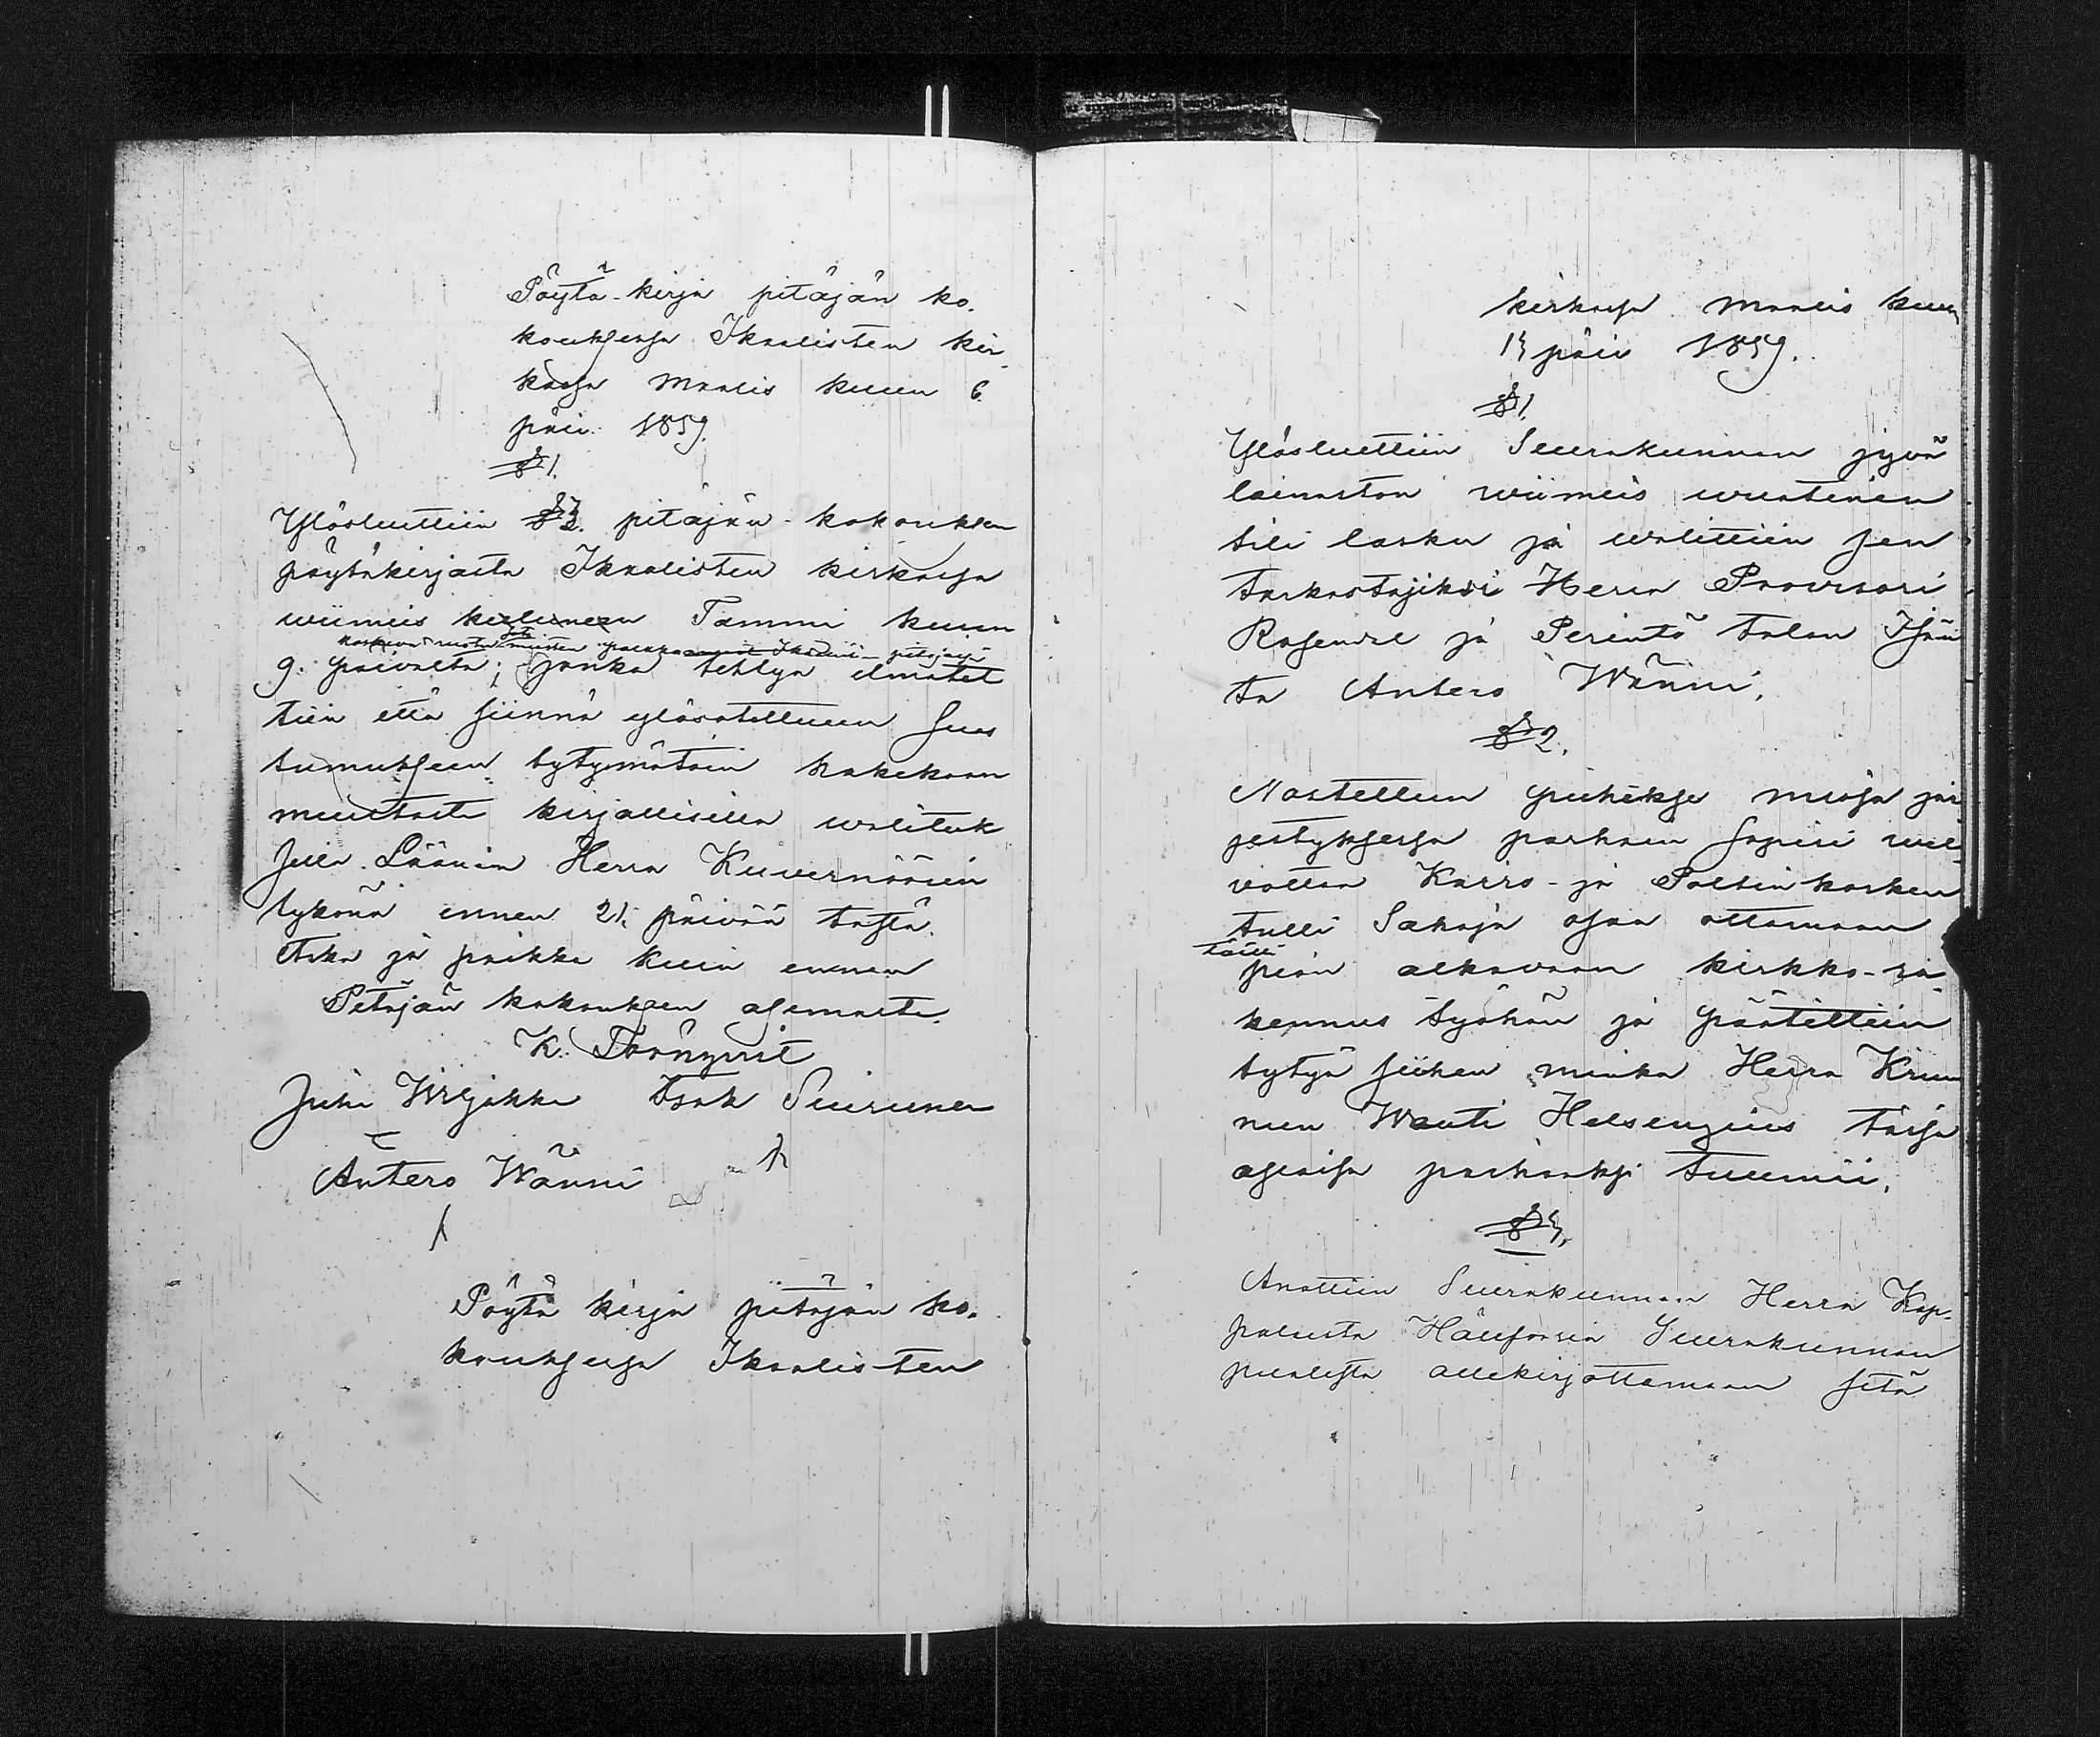 Pöytä-kirja pitäjän ko-
kouksessa Ikaalisten kir-
kossa Maalis kuun 6.
päiv. 1859.
§ 1.
Ylösluettiin § 3. pitäjän-kokouksen
pöytäkirjasta Ikaalisten kirkossa
wiimeis kuluneen Tammi kuun
9. päivältä; jonka tehtyä ilmotet
tiin että siinä ylösotettuun suos
tumukseen tytymätöin hakekoon
muutosta kirjallisilla walituk
silla Läänin Herra Kuvernöörin
tykönä ennen 21. päivää tästä.
Aika ja paikka kuin ennen
Pitäjän kokouksen asemasta.
K. Törnqvist
Juha Wiljakka Isak Siurunen
Antero Wänni
Pöytä kirja pitäjän ko-
kouksessa Ikaalisten
kirkossa Maalis kuun
13 päiv 1859.
§ 1.
Ylösluettiin Seurakunnan jyvä
lainaston wiimeis wuotinen
tili lasku ja walittiin sen
tarkastajiksi Herra Provisori
Rosendal ja Perintö talon Isän
tä Antero Wänni.
§ 2.
Nostettuun puhekse missä jär
jestyksessä parhain sopisi wel-
vottaa Karro- ja Poltinkosken
tulli Sahoja osaa ottamaan
tääll
pian alkavaan kirkko-ra-
kennus työhön ja päätettiin
tytyä siihen minkä Herra Kruu
nun Wouti Helsengius tässä
asiassa parhaaksi tuumii.
§ 3.
Anottiin Seurakunnan Herra Kap-
palaista Hällforsia Seurakunnan
puolesta allekirjottamaan sitä